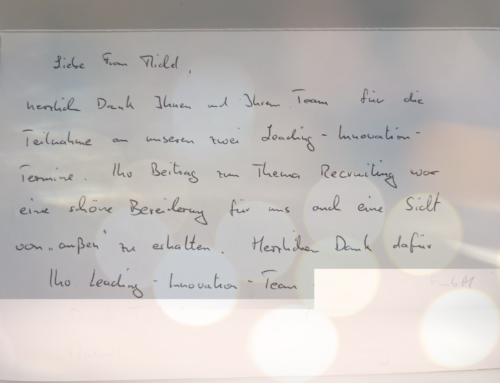 Liebe Frau
herzlich Dank Ihnen und Ihrem Team für die
Teilnahme an unseren zwei Leading-Innovation-
Termine. Ihr Beitrag zum Thema Recruiting war
eine schöne Bereicherung für uns auch eine Sicht
von „außen" zu erhalten. Herzlichen Dank dafür
Ihr Leading-Innovation-Team